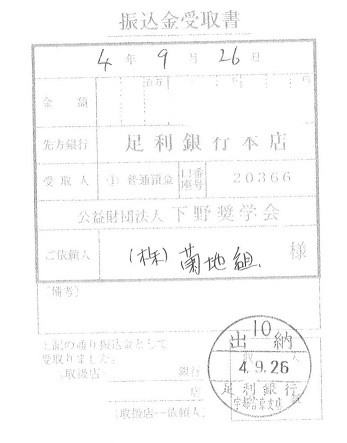 振込金受取書
4年9月26日
金額 百万 千 円
先方銀行 足利銀行本店
受取人 ① 普通預金 口座番号 20366
公益財団法人 下野奨学会
ご依頼人 (株)菊地組 様
(備考)
上記の通り振込金として
受取りました。
取扱店 銀行
店
(取扱店→依頼人)
10
出納
4.9.26
足利銀行